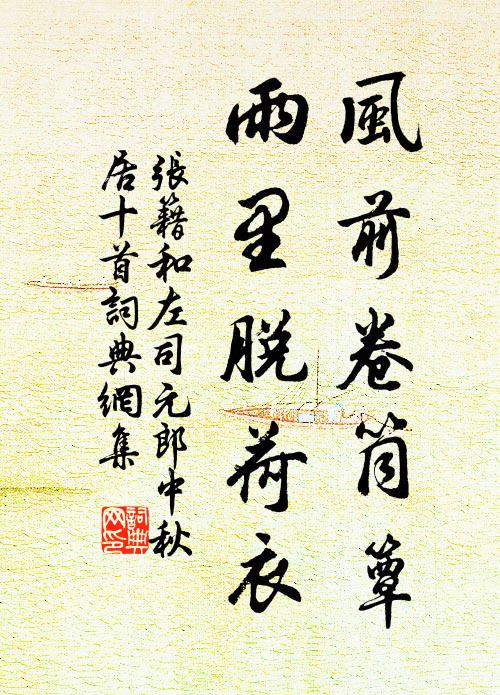 風前卷筒簟
雨里脫荷衣
張籍和左司元郎中秋
居十首詞典網集
詞典
网印